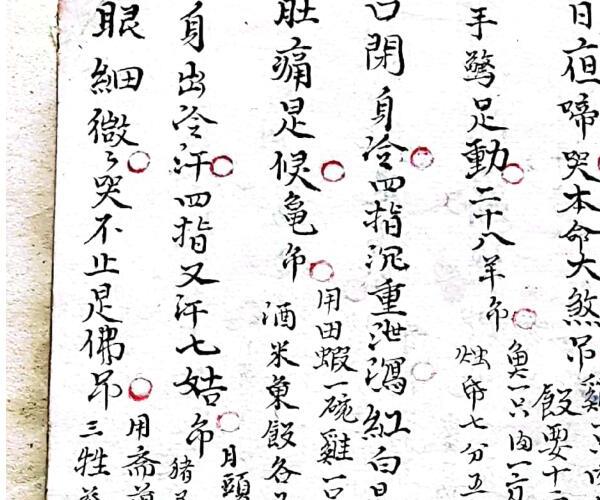 日夜啼哭本命大煞吊
雞一只
飯要十二
手驚足動二十八羊吊
魚一只肉一
燭帋七分五
口閉身冷四指沉重泄瀉紅白
肚痛是候亀吊
用田蝦一碗雞一只
酒米菓飯各
身出冷汗四指又汗七姑吊
月頭
猪
眼細微々哭不止是佛吊
用斋
三牲